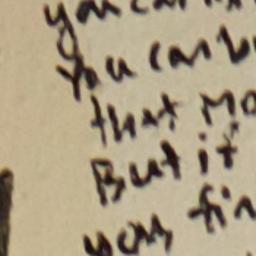 you can
You can
that
But it
your fin